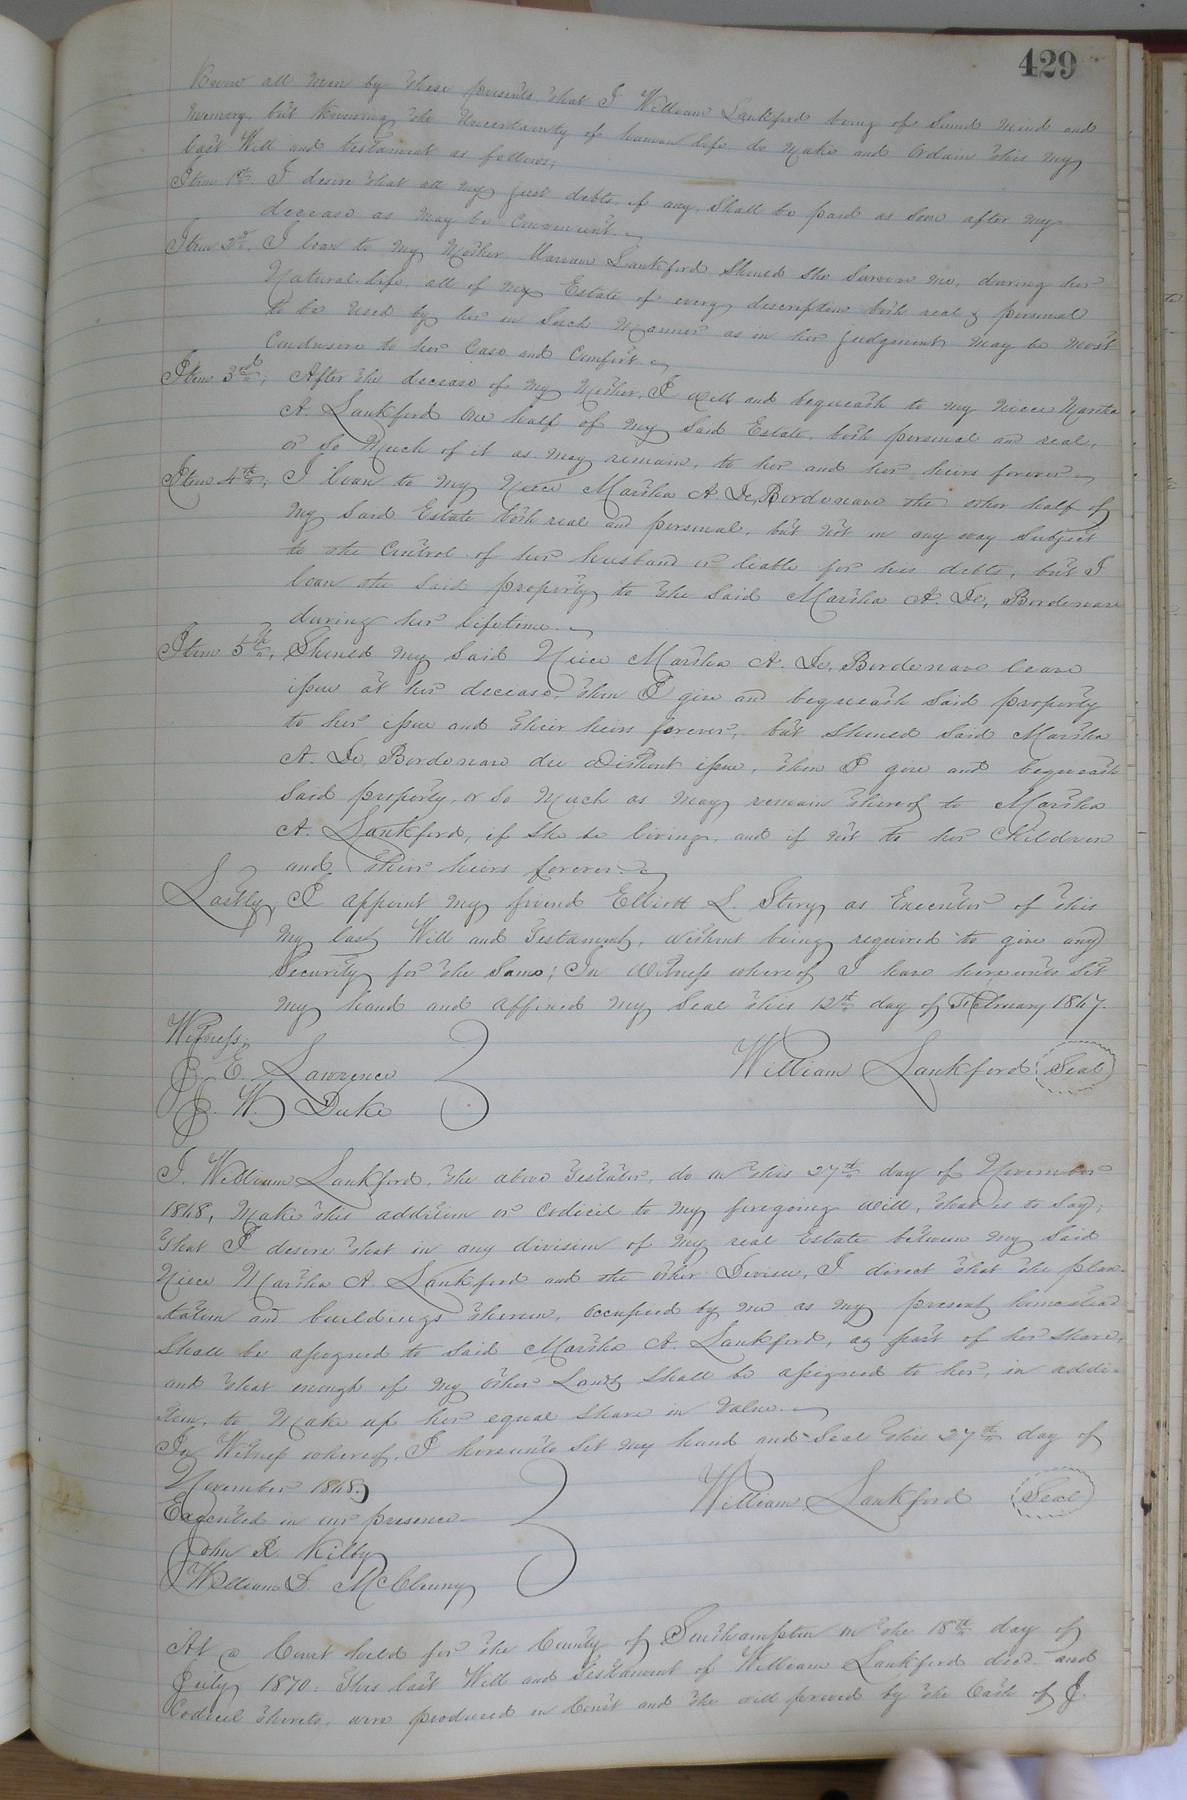 429
Know all men by these presents, that I William Lankford being of Sound Mind and
memory, but Knowing the Uncertainty of human life do Make and Ordain this my
last Will and testament as follows;
Item 1st. I desire that all my just debts, if any, Shall be paid as Soon after my
decease as may be Convenient.
Item 2d. I loan to my Mother Mariam Lankford Should She Survive me, during her
Natural life, all of my Estate of every description both real & personal
to be Used by her in Such Manner as in her judgment may be most
Conducive to her Ease and Comfort.
Item 3rd; After the decease of my Mother, I will and bequeath to my Niece Martha
A. Lankford One half of my Said Estate, both personal and real,
or So Much of it as may remain, to her and her heirs forever
Item 4th; I loan to my Niece Martha A. De, Bordenave the other half of
My Said Estate both real and personal, but not in any way Subject
to the Control of her husband or liable for his debts, but I
loan the Said property to the Said Martha A. De, Bordenave
during her lifetime.
Item 5th, Should my Said Niece Martha A. De, Bordenave leave
issue at her decease, then I give and bequeath Said property
to her issue and their heirs forever, but Should Said Martha
A. De, Bordenave die Without issue, then I give and bequeath
Said property, or So Much as may remain thereof to Martha
A. Lankford, if She be living, and if not to her Children
and their heirs forever.
Lastly, I appoint my friend Elliott L. Story as Executor of this
My last Will and Testament, without being required to give any
Security for the Same; In Witness whereof I have hereunto Set
my hand and affixed my Seal this 12th day of February 1867.
Witness,
J. E. Lawrence
J. W. Duke
William Lankford Seal
I. William Lankford, the above Testator, do on this 27th day of November
1868, Make this addition or Codicil to my foregoing will, that is to Say,
That I desire that in any division of my real Estate between my Said
Niece Martha A. Lankford and the other Devisee, I direct that the plan-
tation and buildings thereon, occupied by me as my present homestead
Shall be assigned to Said Martha A. Lankford, as part of her Share,
and that enough of my other Lands Shall be assigned to her, in addi-
tion, to Make up her equal Share in Value.
In Witness whereof, I hereunto Set my hand and Seal this 27th day of
November 1868.
William Lankford Seal
Executed in our presence
John R. Kilby
William D. McClenny
At a Court held for the County of Southampton on the 18th day of
July 1870. This last Will and Testament of William Lankford decd and
Codicil thereto, were produced in Court and the will proved by the Oath of J.